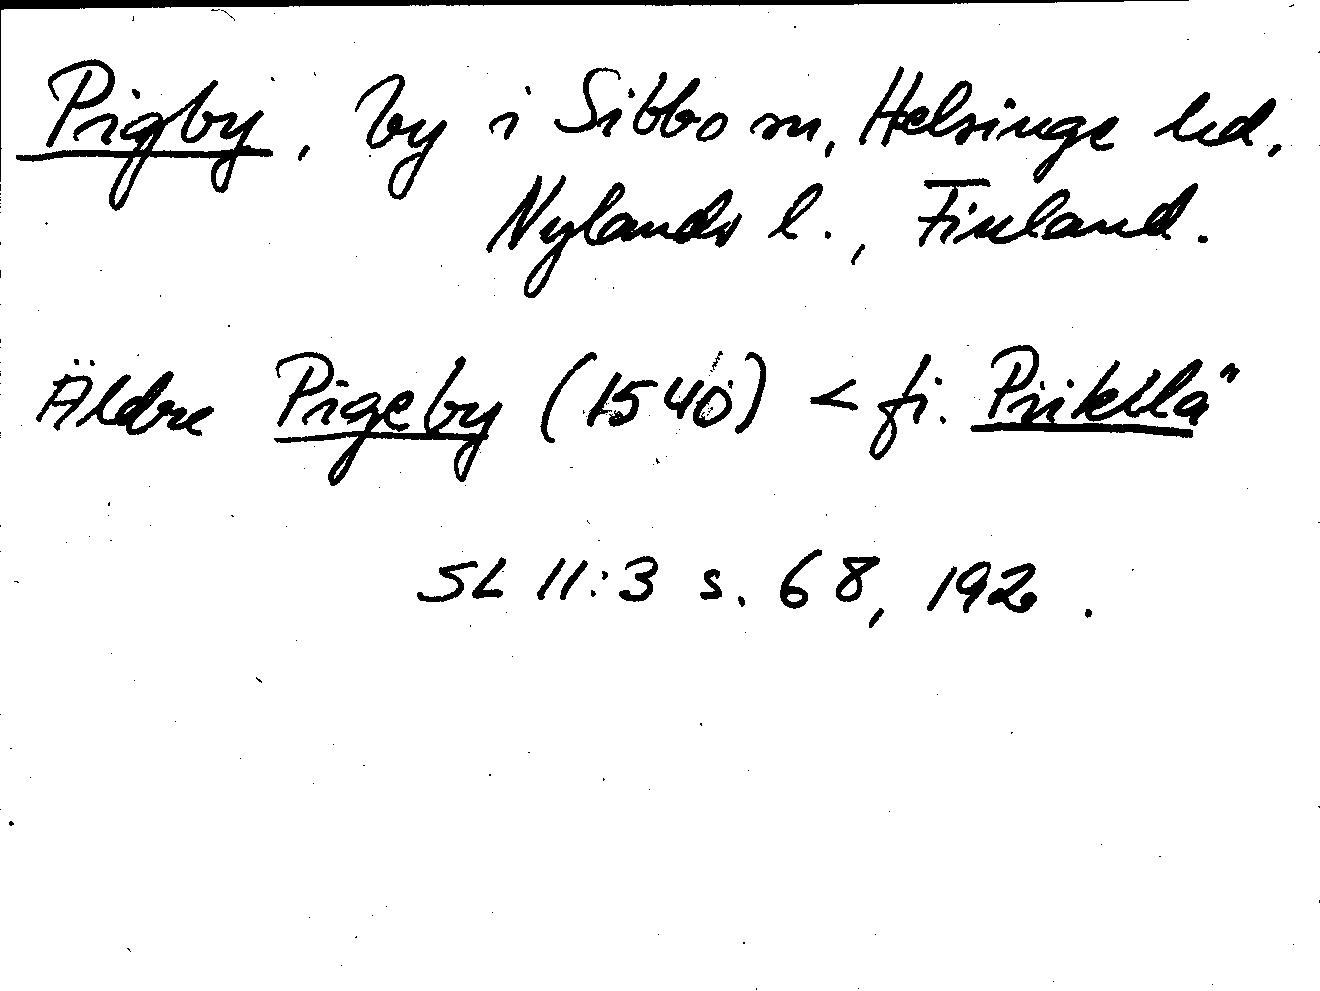 Pigby, by i Sibbo sn, Helsinge hd,
Nylands l., Finland.
Äldre Pigeby (1540) < fi. Piikilä
SL 11:3 s. 68, 192.